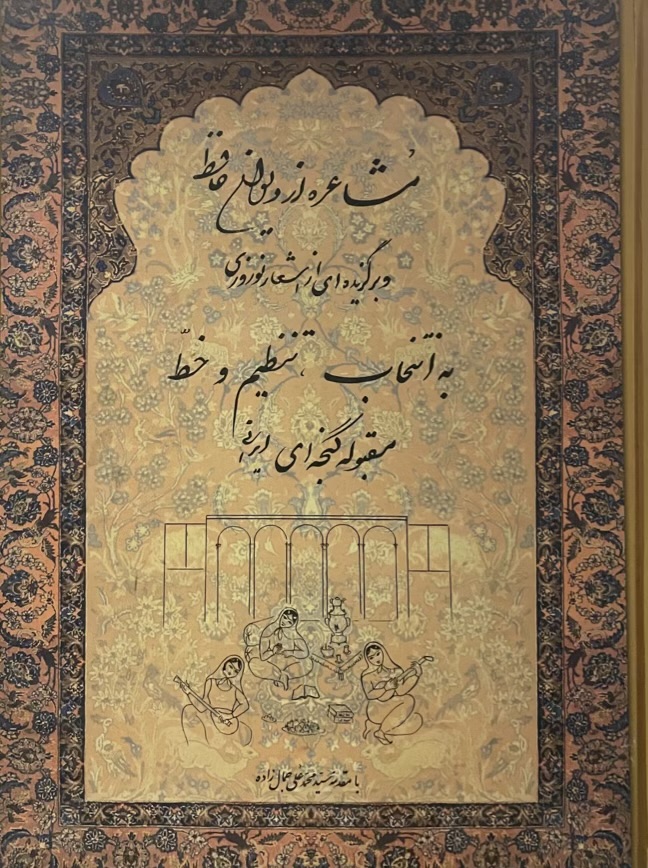 مُشاعره از دیوان حافظ
و برگزیده‌ای از اشعار نوروزی
به انتخاب، تنظیم و خطّ
مقبوله گنجه‌ای ایرانی
با مقدمه سید محمد علی جمال زاده